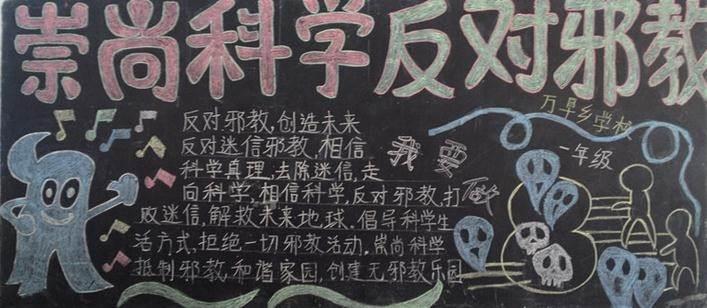 崇尚科学反对邪教
万旱乡学校
一年级
反对邪教,创造未来
反对迷信邪教,相信
科学真理,去除迷信,走
向科学,相信科学,反对邪教,打
败迷信,解救未来地球,倡导科学生
活方式,拒绝一切邪教活动,崇尚科学
抵制邪教,和谐家园,创建无邪教乐园
我要